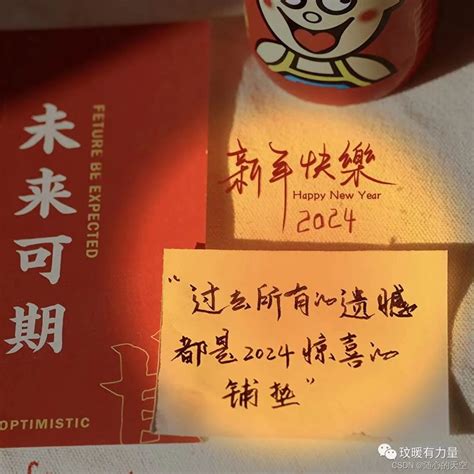 未来可期
FETURE BE EXPECTED
OPTIMISTIC
新年快樂
Happy New Year
2024
"过去所有的遗憾
都是2024惊喜的
铺垫"
玟暖有力量
CSDN @随心的天空